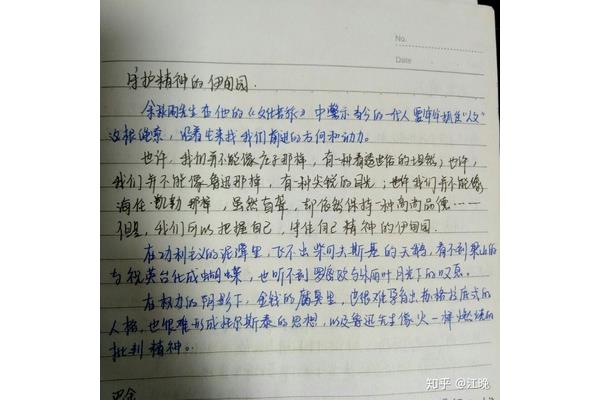 No.
Date
守护精神的伊甸园.
余秋雨先生在他的《文化苦旅》中警示当今的一代人要牢牢抓住"人文"
这根绳索，沿着它来找我们前进的方向和动力。
也许，我们并不能像庄子那样，有一种看透世俗的坦然；也许，
我们并不能像鲁迅那样，有一种尖锐的目光；也许我们并不能像
海伦·凯勒那样，虽然盲聋，却依然保持一种高尚品德……
但是，我们可以把握自己，守住自己精神的伊甸园.
在功利主义的泥潭里，飞不出柴可夫斯基的天鹅，看不到梁山伯
与祝英台化成蝴蝶，也听不到罗密欧与朱丽叶月光下的叹息。
在权力的阴影下，金钱的腐臭里，也很难孕育出苏格拉底式的
人格，也很难形成托尔斯泰的思想，以及鲁迅先生像火一样燃烧的
批判精神。
知乎 @江晚